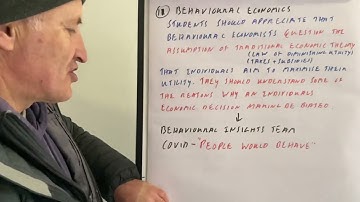 (18) BEHAVIOURAL ECONOMICS
STUDENTS SHOULD APPRECIATE THAT
BEHAVIOURAL ECONOMISTS QUESTION THE
ASSUMPTION OF TRADITIONAL ECONOMIC THEORY
(LAW OF DIMINISHING UTILITY)
(TAXES + SUBSIDIES)
THAT INDIVIDUALS AIM TO MAXIMISE THEIR
UTILITY. THEY SHOULD UNDERSTAND SOME OF
THE REASONS WHY AN INDIVIDUALS
ECONOMIC DECISION MAKING BE BIASED
↓
BEHAVIOURAL INSIGHTS TEAM
COVID - "PEOPLE WOULD BEHAVE"